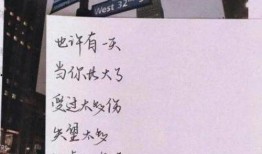 West 32nd
也许有一天
当你长大了
受过太多伤
失望太多